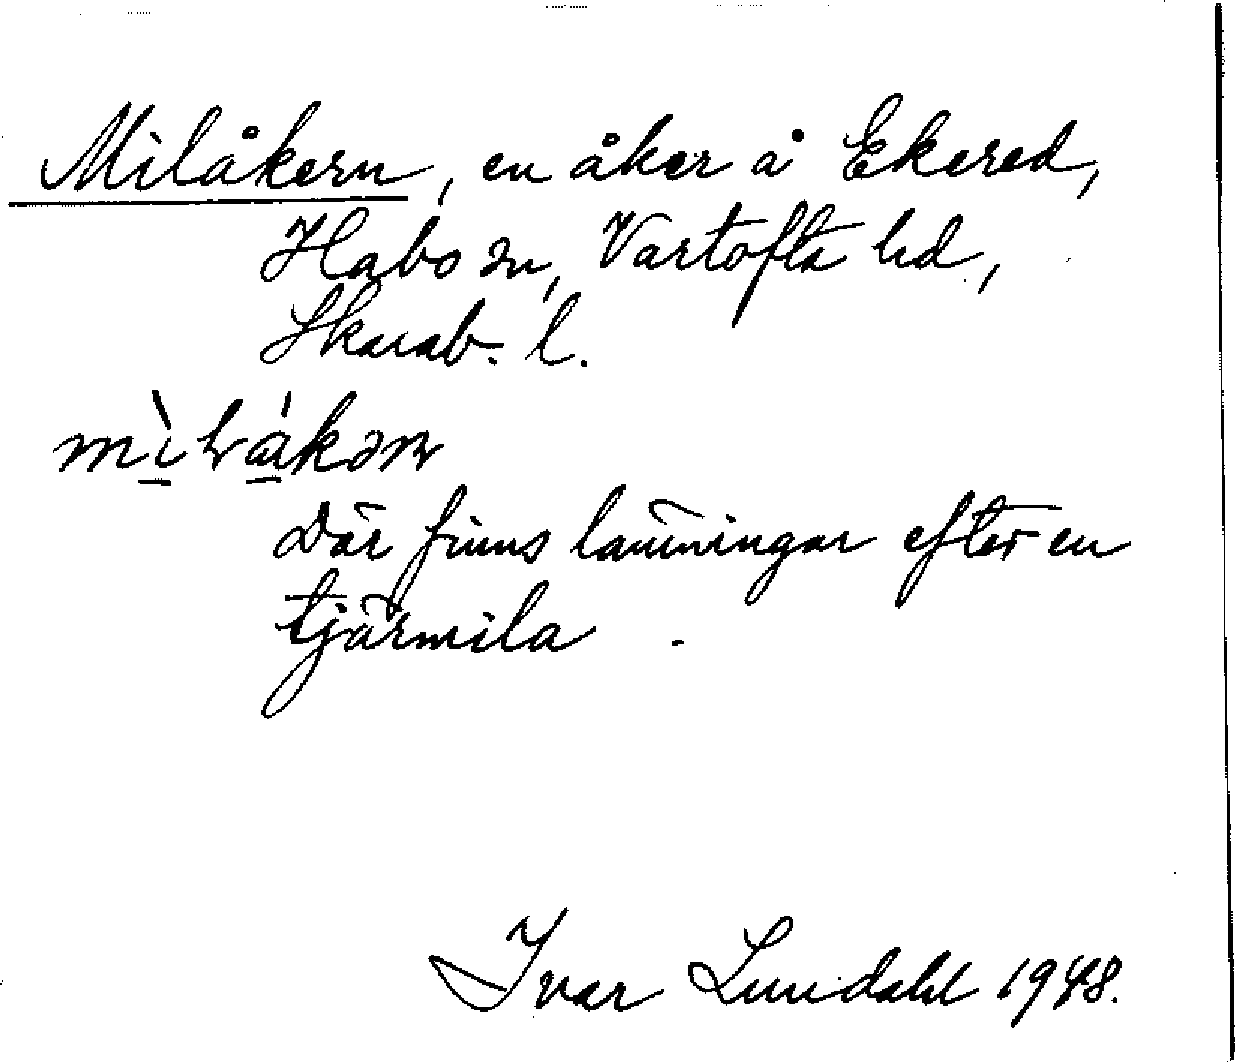 Milåkern, en åker å Ekered,
Habo sn, Vartofta hd,
Skarab. l.
Där finns lämningar efter en
tjärmila.
Ivar Lundahl 1948.